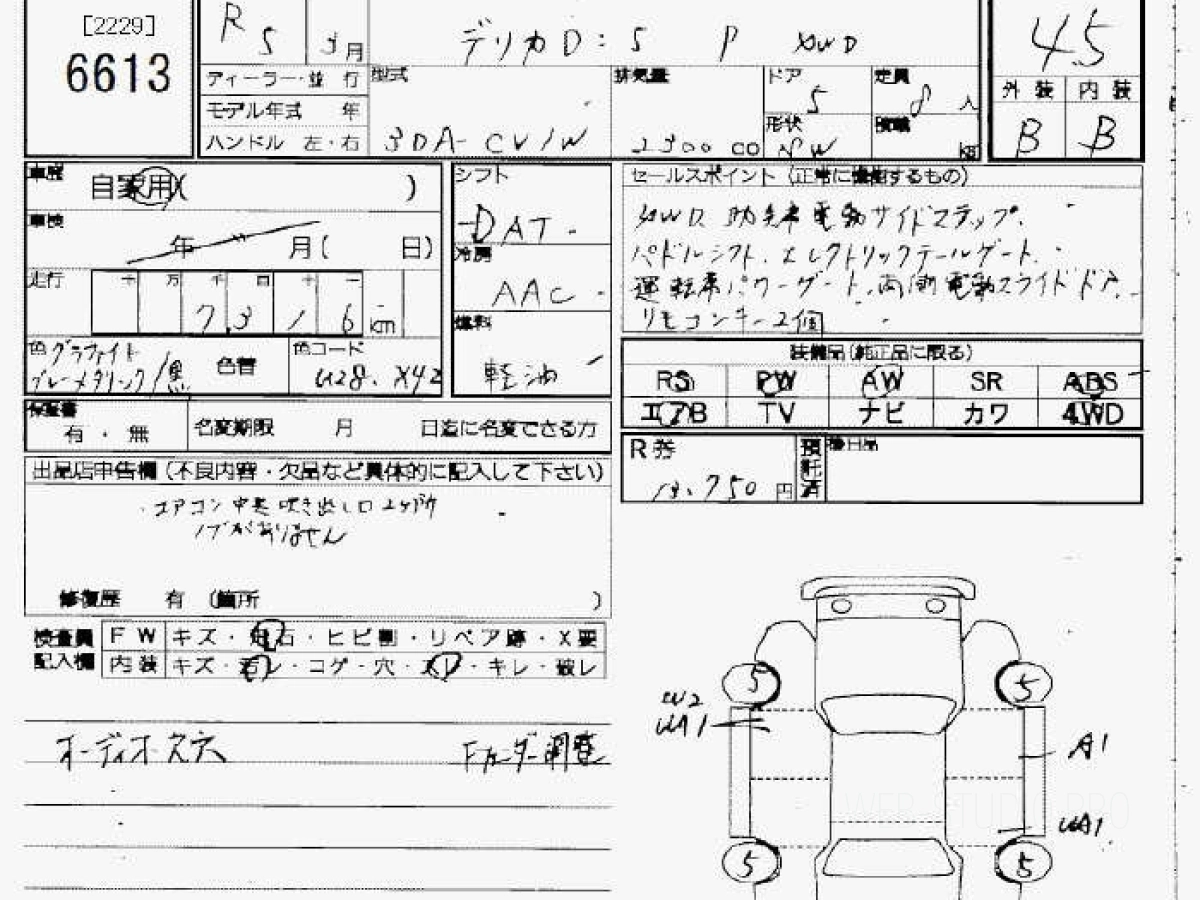 [2229]
6613
R 5 3月
デリカD:5 P 4WD
4.5
ディーラー・並行
モデル年式 年
ハンドル 左・右
型式
3DA-CV1W
排気量
2300 cc
ドア
5
定員
8 人
形状
積載
kg
外装 内装
B B
車歴
自家用( )
車検
年 月( 日)
走行
十 万 千 百 十 一
7 3 1 6 km
色 グラファイト
グレーメタリック/黒
色替
色コード
U28. X42
シフト
DAT
冷房
AAC
燃料
軽油
セールスポイント (正常に機能するもの)
4WD. 助手席電動サイドステップ.
パドルシフト. エレクトリックテールゲート.
運転席パワーシート. 両側電動スライドドア.
リモコンキー2個
装備品(純正品に限る)
RS PW AW SR ABS
エアB TV ナビ カワ 4WD
保証書
有・無
名変期限 月 日迄に名変できる方
R券
円
預託済
後日品
出品店申告欄(不良内容・欠品など具体的に記入して下さい)
エアコン中央吹き出し口2ヶ所
ノブがありません
修復歴 有 (箇所 )
検査員記入欄
FW キズ・飛石・ヒビ割・リペア跡・X要
内装 キズ・汚レ・コゲ・穴・スレ・キレ・破レ
オーディオ欠穴
5 5
W2
UA1
A1
UA1
5 5
WEB STUDIO PRO